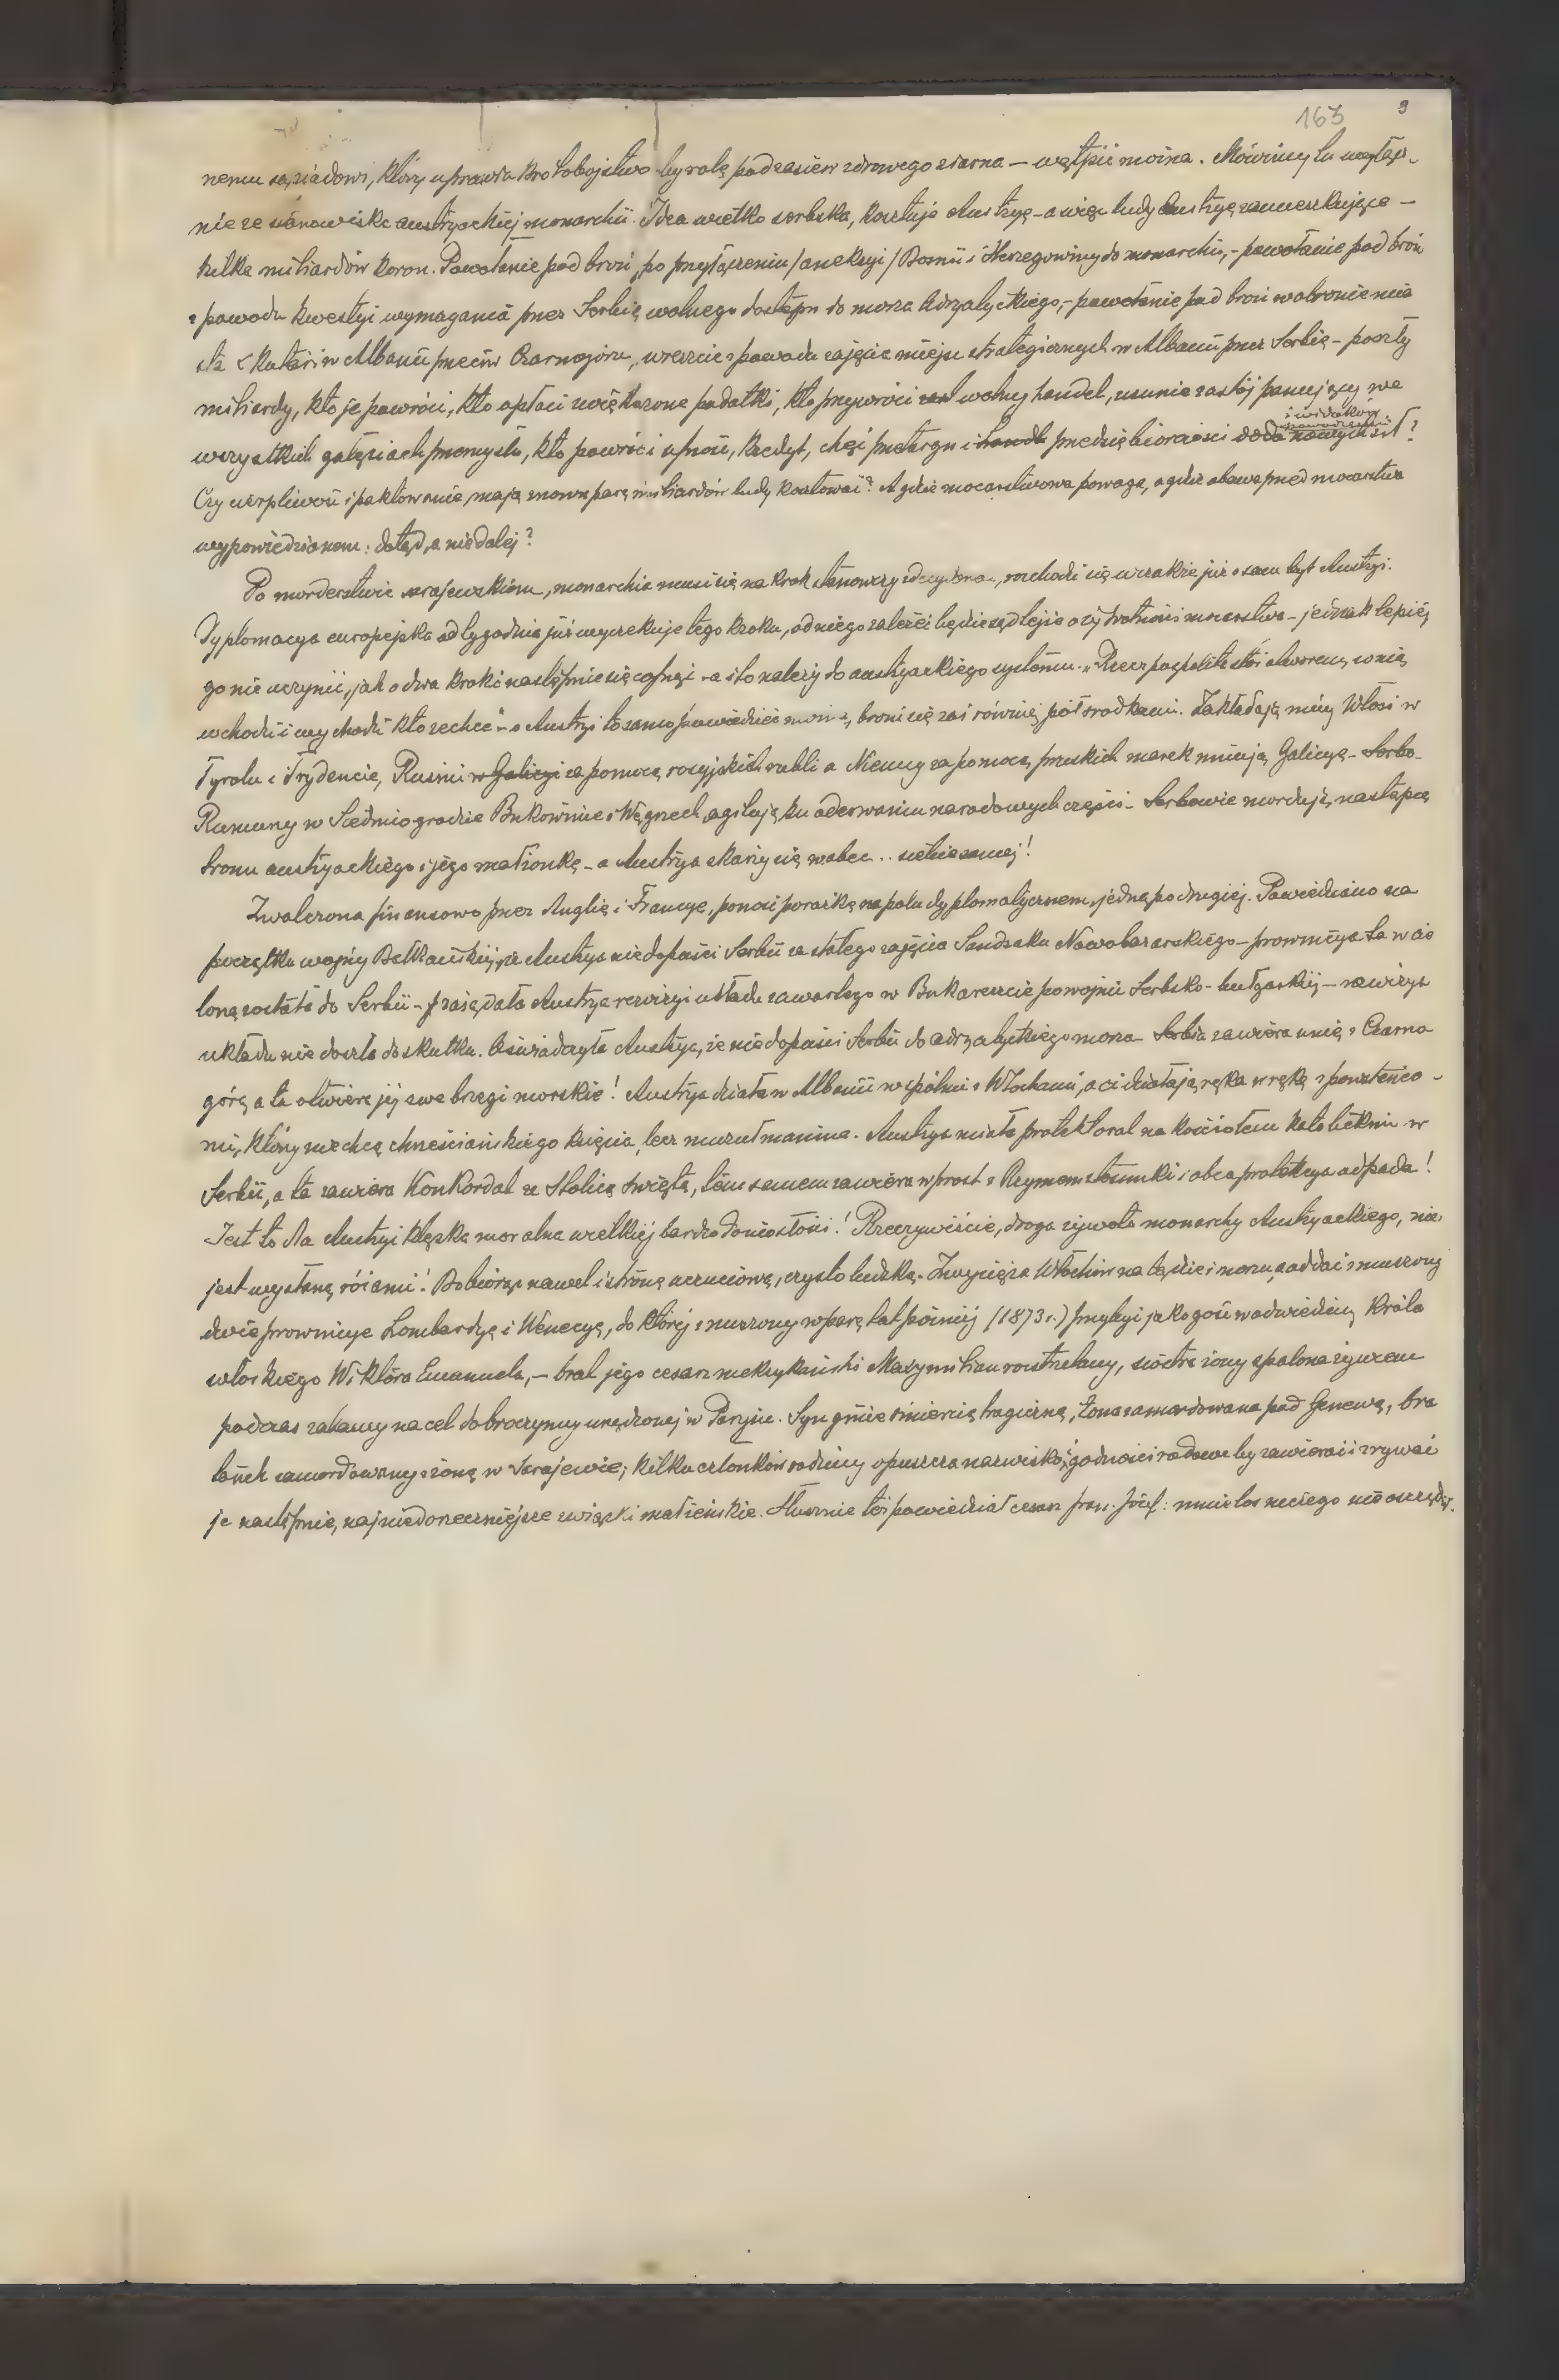 163 9
nemu sąsiadowi, który uprawia krotobojstwo by rolę pod zasiew zdrowego ziarna — wątpić można. Mówimy tu wyłącz-
nie ze stanowiska austryackiej monarchii. Idea wielko serbska, kosztuje Austryę – a więc ludy Austryę zamieszkujące –
kilka miliardów koron. Powołanie pod broń, po przyłączeniu /aneksyi/ Bosnii i Hercegowiny do monarchii, – powołanie pod broń
z powodu kwestyi wymagania przez Serbię wolnego dostępu do morza Adryatyckiego, – powołanie pod broń w obronie mia
sta Skutari w Albanii przeciw Czarnogóru, wreszcie z powodu zajęcia miejsc strategicznych w Albanii przez Serbię – poszły
miliardy, kto je powróci, kto opłaci zwiększone podatki, kto przywróci wolny handel, usunie zastój panujący we
wszystkich gałęziach przemysłu, kto powróci ufność, kredyt, chęć przetargu i handl przedsiębiorczości doda nowych sił?
Czy cierpliwość i paktowanie, mają znowu parę miliardów ludy kosztować? A gdzie mocarstwowa powaga, a gdzie obawa przed mocarstwa
wypowiedzianem: dotąd, a nie dalej?
Po morderstwie sarajewskiem, monarchia musi się na krok stanowczy zdecydować, rozchodzi się wszakże już o sam byt Austryi.
Dyplomacya europejska od tygodnia już wyczekuje tego kroku, od niego zależeć będzie sąd tejże o żywotności mocarstwa – jednak lepiej
go nie uczynić, jak o dwa kroki następnie się cofnąć – a i to należy do austryackiego systemu. „Rzeczpospolita stoi otworem, w nią
wchodzi i wychodzi kto zechce" – o Austryi to samo powiedzieć można, broni się zaś również półśrodkami. Zakładają miny Włosi w
Tyrolu i Trydencie, Rusini w Galicyi za pomocą rosyjskich rubli a Niemcy za pomocą pruskich marek minują Galicyę – Serbo-
Rumuny w Siedmiogrodzie Bukowinie i Węgrzech, agitują ku oderwaniu narodowych części – Serbowie mordują, następcę
tronu austryackiego i jego małżonkę – a Austrya skarży się wobec .. siebie samej!
Zwalczona finansowo przez Anglię i Francye, ponosi porażkę na polu dyplomatycznem, jedną po drugiej. Powiedziano na
początku wojny Bałkańskiej, że Austrya nie dopuści Serbii ze stałego zajęcia Sandżaku Nowobazarskiego – prowincya ta wcie
loną została do Serbii – zażądała Austrya rewizyi układu zawartego w Bukareszcie po wojnie Serbsko-bułgarskiej – rewizya
układu nie doszła do skutku. Oświadczyła Austrya, że nie dopuści Serbii do adryatyckiego morza – Serbia zawiera unię z Czarno
górą a ta otwiera jej swe brzegi morskie! Austrya działa w Albanii wspólnie z Włochami, a ci działają ręka w rękę z powstańca-
mi, którzy nie chcą chrześcijańskiego księcia, lecz muzułmanina. Austrya miała protektorat na kościołem katolickim w
Serbii, a ta zawiera Konkordat ze Stolicą świętą, tem samem zawiera wprost z Rzymem stosunki i obca protekcya odpada!
Jest to dla Austryi klęska moralna wielkiej bardzo doniosłości! Rzeczywiście, droga żywota monarchy Austryackiego, nie
jest wysłaną różami! Dobiorąc nawet i stronę uczuciową, czysto ludzką. Zwycięża Włochów na lądzie i morzu, a oddać zmuszony
dwie prowincye Lombardyę i Wenecyę, do której zmuszony w parę lat później (1873 r.) przybyć jako gość w odwiedziny Króla
włoskiego Wiktora Emanuela, – brat jego cesarz meksykański Maxymilian rozstrzelany, siostra żony spalona żywcem
podczas zabawy na cel dobroczynny urządzonej w Paryżu. Syn ginie śmiercią tragiczną, żona zamordowana pod Genewą, bra
tanek zamordowany z żoną w Sarajewie; kilku członków rodziny opuszcza nazwisko, i godności rodowe by zawierać i zrywać
je następnie, najniedorzeczniejsze związki małżeńskie. Słusznie też powiedział cesarz Fran. Józef: mnie los niczego nie oszczędził.